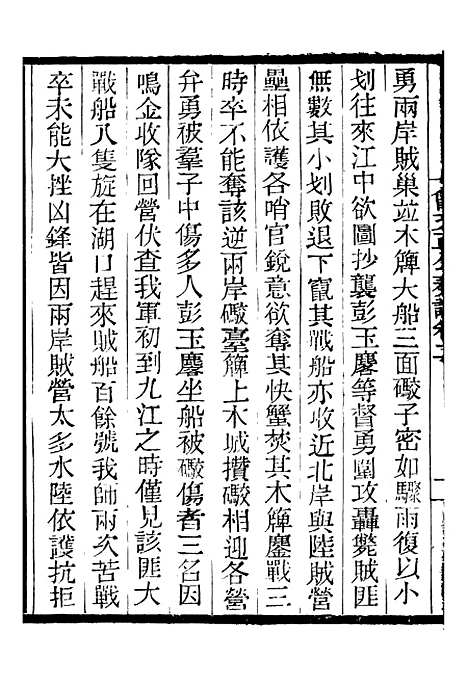 勇兩岸賊巢並木簰大船三面礮子密如驟雨復以小
划往來江中欲圖抄襲彭玉麐等督勇圍攻轟斃賊匪
無數其小划敗退下竄其戰船亦收近北岸與陸賊營
壘相依護各哨官銳意欲奪其快蟹焚其木簰鏖戰三
時卒不能奪該逆兩岸礮臺簰上木城攢礮相迎各營
弁勇被羣子中傷多人彭玉麐坐船被礮傷者三名因
鳴金收隊回營伏查我軍初到九江之時僅見該匪大
戰船八隻旋在湖口趕來賊船百餘號我師兩次苦戰
卒未能大挫凶鋒皆因兩岸賊營太多水陸依護抗拒